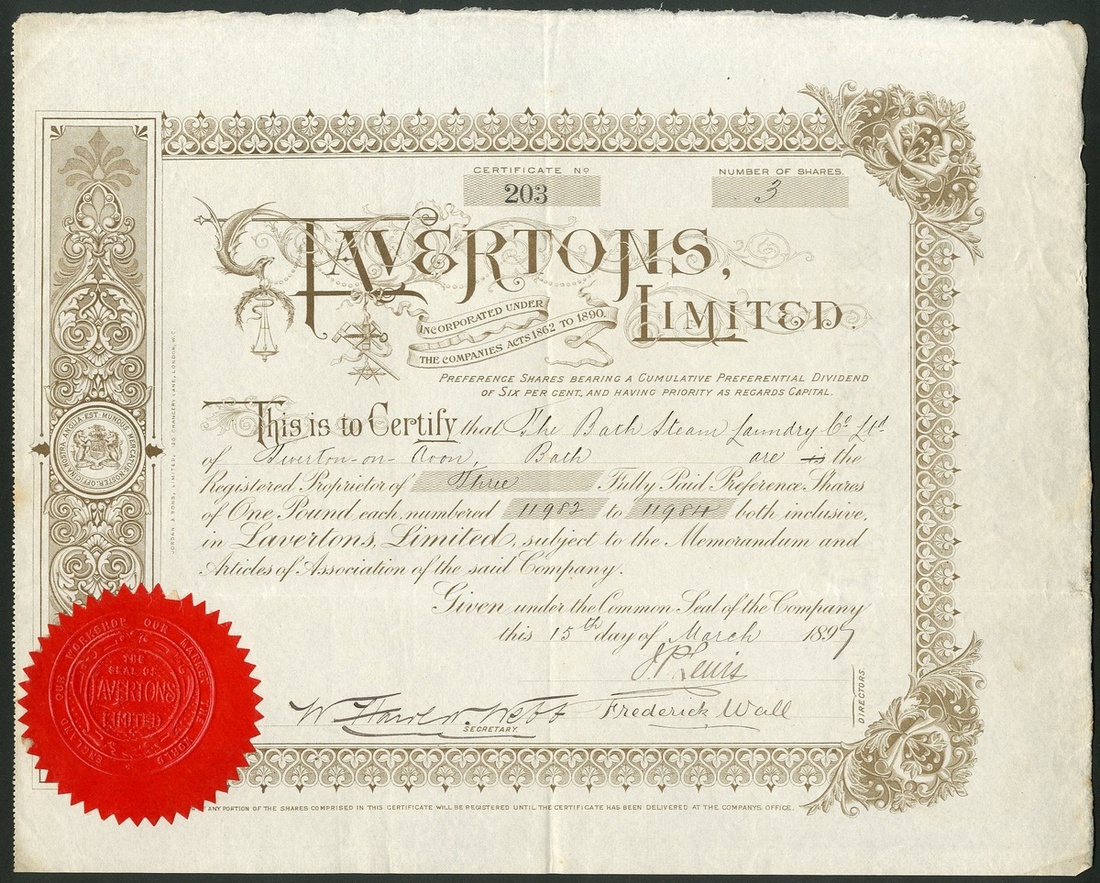 CERTIFICATE No
203
NUMBER OF SHARES.
3
LAVERTONS,
LIMITED.
INCORPORATED UNDER
THE COMPANIES ACTS 1862 TO 1890.
PREFERENCE SHARES BEARING A CUMULATIVE PREFERENTIAL DIVIDEND
OF SIX PER CENT., AND HAVING PRIORITY AS REGARDS CAPITAL.
This is to Certify that The Bath Steam Laundry Co Ltd
of Twerton-on-Avon, Bath are is the
Registered Proprietor of Three Fully Paid Preference Shares
of One Pound each, numbered 11982 to 11984 both inclusive,
in Lavertons, Limited, subject to the Memorandum and
Articles of Association of the said Company.
Given under the Common Seal of the Company
this 15th day of March 1897
J. P. Lewis
W. Harold Webb
Frederick Wall
SECRETARY.
DIRECTORS.
ANY PORTION OF THE SHARES COMPRISED IN THIS CERTIFICATE WILL BE REGISTERED UNTIL THE CERTIFICATE HAS BEEN DELIVERED AT THE COMPANYS OFFICE.
JORDAN & SONS, LIMITED, 120 CHANCERY LANE, LONDON, W.C.
OFFICINA NOSTRA ANGLIA EST: MUNDUS MERCATUS NOSTER
ENGLAND OUR WORKSHOP OUR MARKET THE WORLD
THE
SEAL OF
LAVERTONS
LIMITED